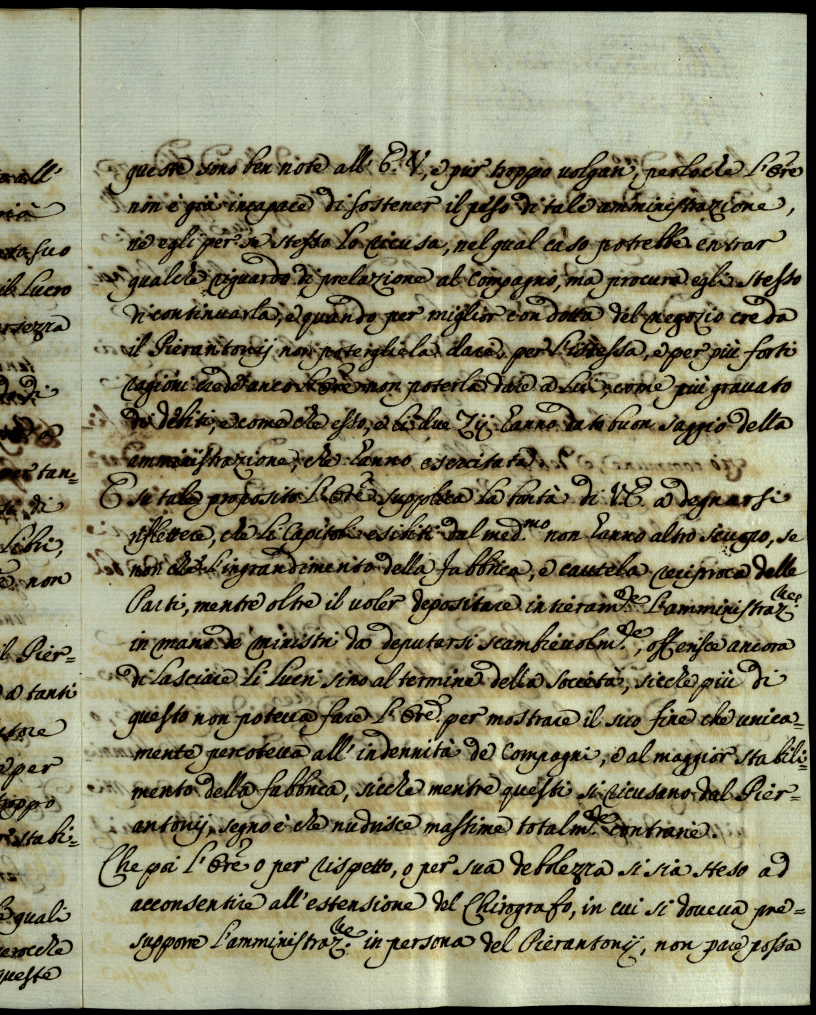 queste sono ben note all' E. V., e pur troppo volgari, perloche l'Ore
non è già incapace di sostener il peso di tale amministrazione,
nè egli per se stesso lo ricusa, nel qual caso potrebbe entrar
qualche riguardo di prelazione al Compagno, ma procura egli stesso
di continuarla, e quando per miglior condotta del negozio creda
il Pierantonij non potergliela dare, per l'istessa, e per più forti
ragioni crede anco l'Ore non poterla dare a Lui, come più gravato
di debiti, e come che esso, e li due Zij hanno dato buon saggio della
amministrazione, che hanno esercitata.
E su tale proposito l'Ore supplica la bontà di V.E. a degnarsi
riflettere, che li Capitoli esibiti dal med.mo non hanno altro scuopo, se
non che l'ingrandimento della Fabbrica, e cautela reciproca delle
Parti, mentre oltre il voler depositare intieram.te l'amministraz.ne
in mano de ministri da deputarsi scambievolm.te, offerisce ancora
di lasciare li Lucri sino al termine della Società, sicche più di
questo non poteva fare l'Ore per mostrare il suo fine che unica=
mente percoteva all' indennità de Compagni, e al maggior stabili=
mento della fabbrica, sicche mentre questi si ricusano dal Pier=
antonij, segno è che nudrisce massime totalm.te contrarie.
Che poi l'Ore o per rispetto, o per sua debolezza si sia steso ad
acconsentire all'estensione del Chirografo, in cui si doveva pre=
supporre l'amministraz.ne in persona del Pierantonij, non pare possa